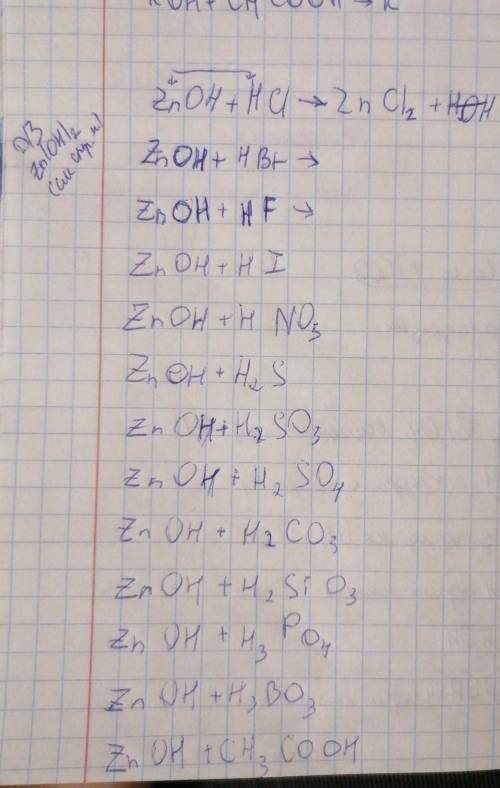 KOH + CH₃COOH → K
ZnOH + HCl → ZnCl₂ + HOH
Д/З
Zn(OH)₂
ZnOH + HBr →
ZnOH + HF →
ZnOH + HI
ZnOH + HNO₃
ZnOH + H₂S
ZnOH + H₂SO₃
ZnOH + H₂SO₄
ZnOH + H₂CO₃
ZnOH + H₂SiO₃
ZnOH + H₃PO₄
ZnOH + H₃BO₃
ZnOH + CH₃COOH